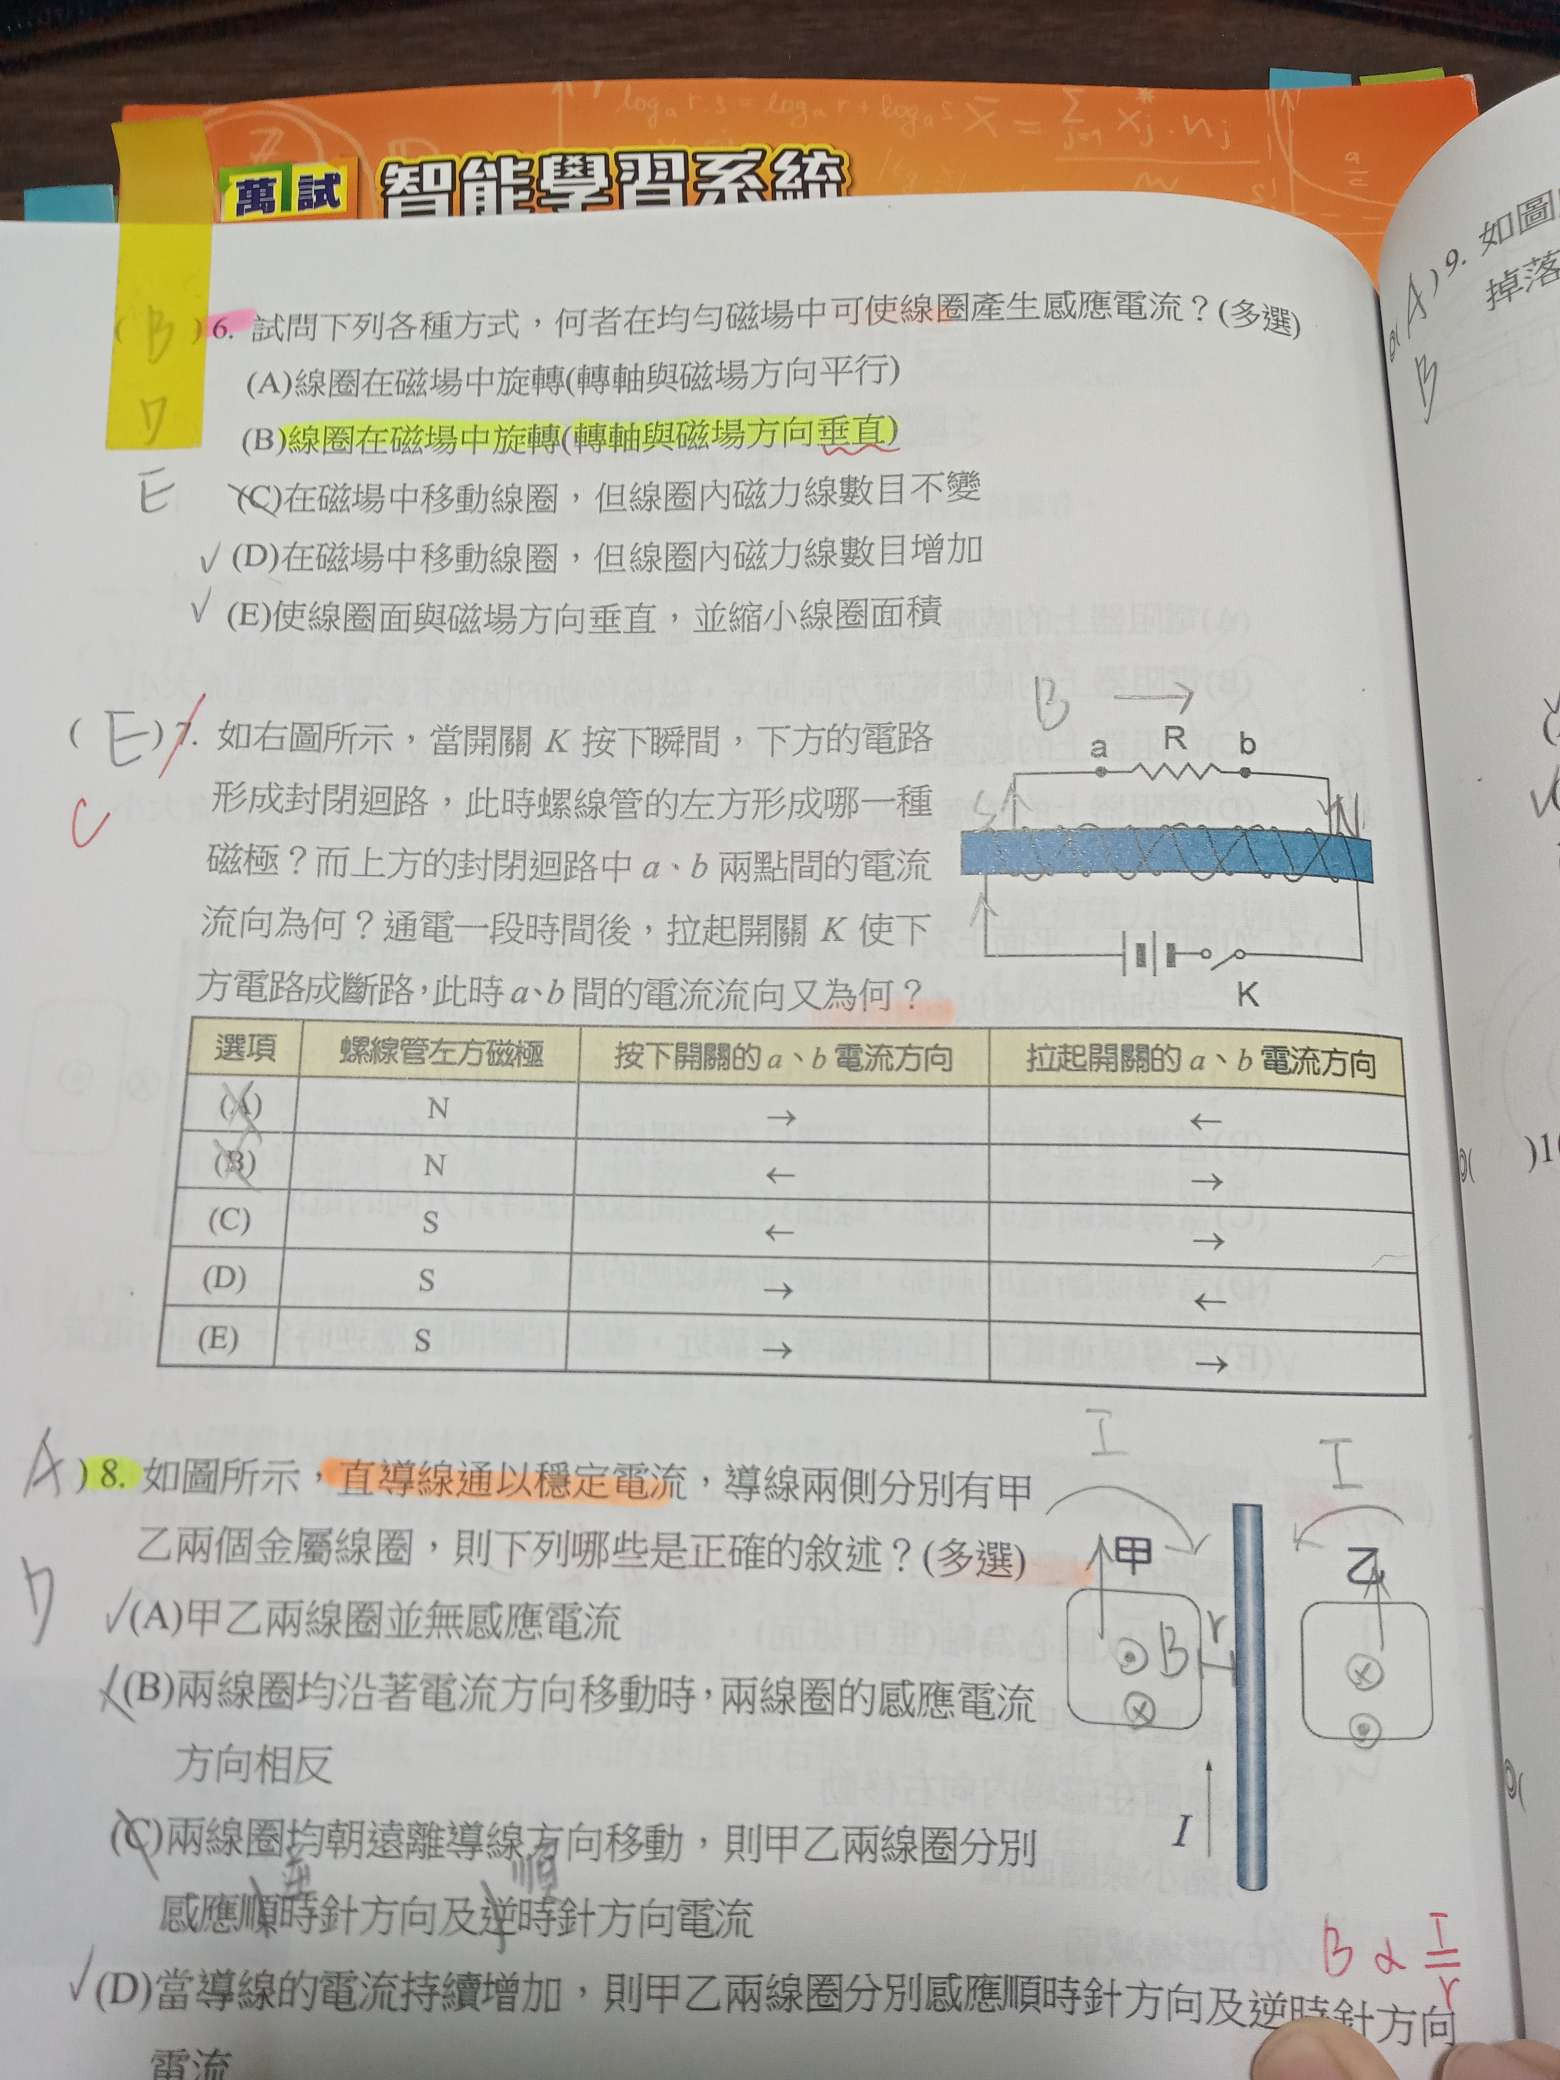 logₐ r·s = logₐ r + logₐ s
萬試 智能學習系統
( B )6. 試問下列各種方式，何者在均勻磁場中可使線圈產生感應電流？(多選)
(A)線圈在磁場中旋轉(轉軸與磁場方向平行)
D
(B)線圈在磁場中旋轉(轉軸與磁場方向垂直)
E
(C)在磁場中移動線圈，但線圈內磁力線數目不變
(D)在磁場中移動線圈，但線圈內磁力線數目增加
(E)使線圈面與磁場方向垂直，並縮小線圈面積
( E )7. 如右圖所示，當開關 K 按下瞬間，下方的電路
C
形成封閉迴路，此時螺線管的左方形成哪一種
磁極？而上方的封閉迴路中 a、b 兩點間的電流
流向為何？通電一段時間後，拉起開關 K 使下
方電路成斷路，此時 a、b 間的電流流向又為何？
B →
a R b
S N
K
選項 螺線管左方磁極 按下開關的 a、b 電流方向 拉起開關的 a、b 電流方向
(A) N → ←
(B) N ← →
(C) S ← →
(D) S → ←
(E) S → →
A )8. 如圖所示，直導線通以穩定電流，導線兩側分別有甲
D
乙兩個金屬線圈，則下列哪些是正確的敘述？(多選)
(A)甲乙兩線圈並無感應電流
(B)兩線圈均沿著電流方向移動時，兩線圈的感應電流
方向相反
(C)兩線圈均朝遠離導線方向移動，則甲乙兩線圈分別
感應順時針方向及逆時針方向電流
順
(D)當導線的電流持續增加，則甲乙兩線圈分別感應順時針方向及逆時針方向
電流
I I
甲 乙
B r
I
B ∝ I/r
A )9. 如圖
B
掉落
)1